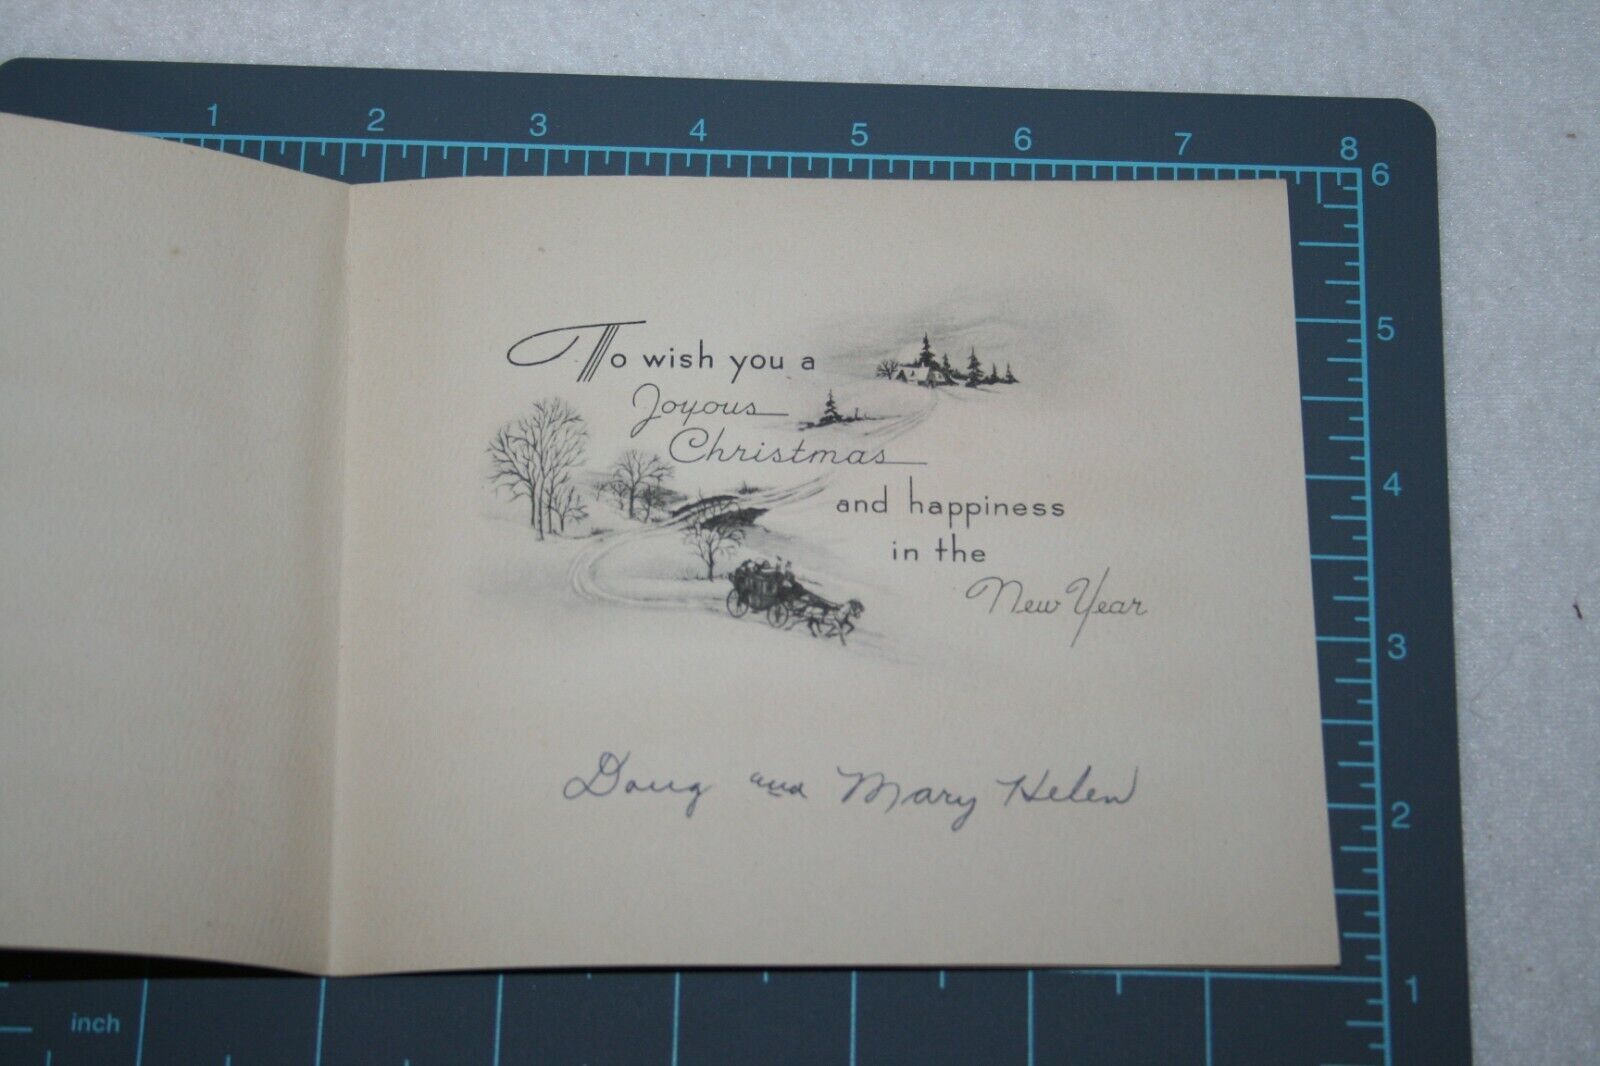 1 2 3 4 5 6 7 8
6
5
4
3
2
1
To wish you a
Joyous
Christmas
and happiness
in the
New Year
Doug and Mary Helen
inch